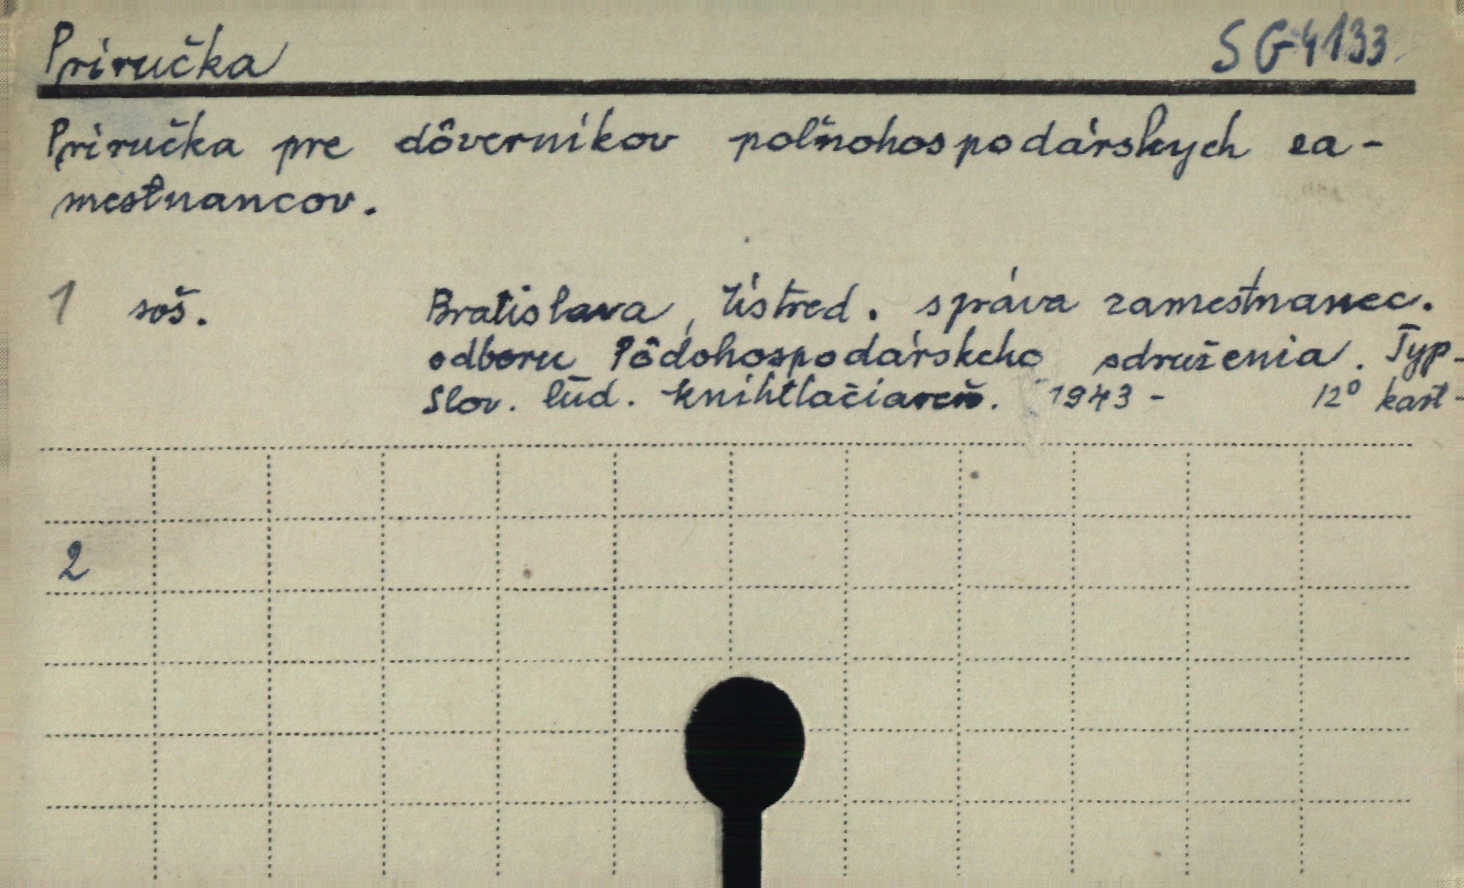 Príručka SG4133
Príručka pre dôverníkov poľnohospodárskych za-
mestnancov.
1 soš. Bratislava, Ústred. správa zamestnanec.
odboru Pôdohospodárskeho združenia. Typ-
Slov. ľud. kníhtlačiareň. 1943- 12° kart-
2